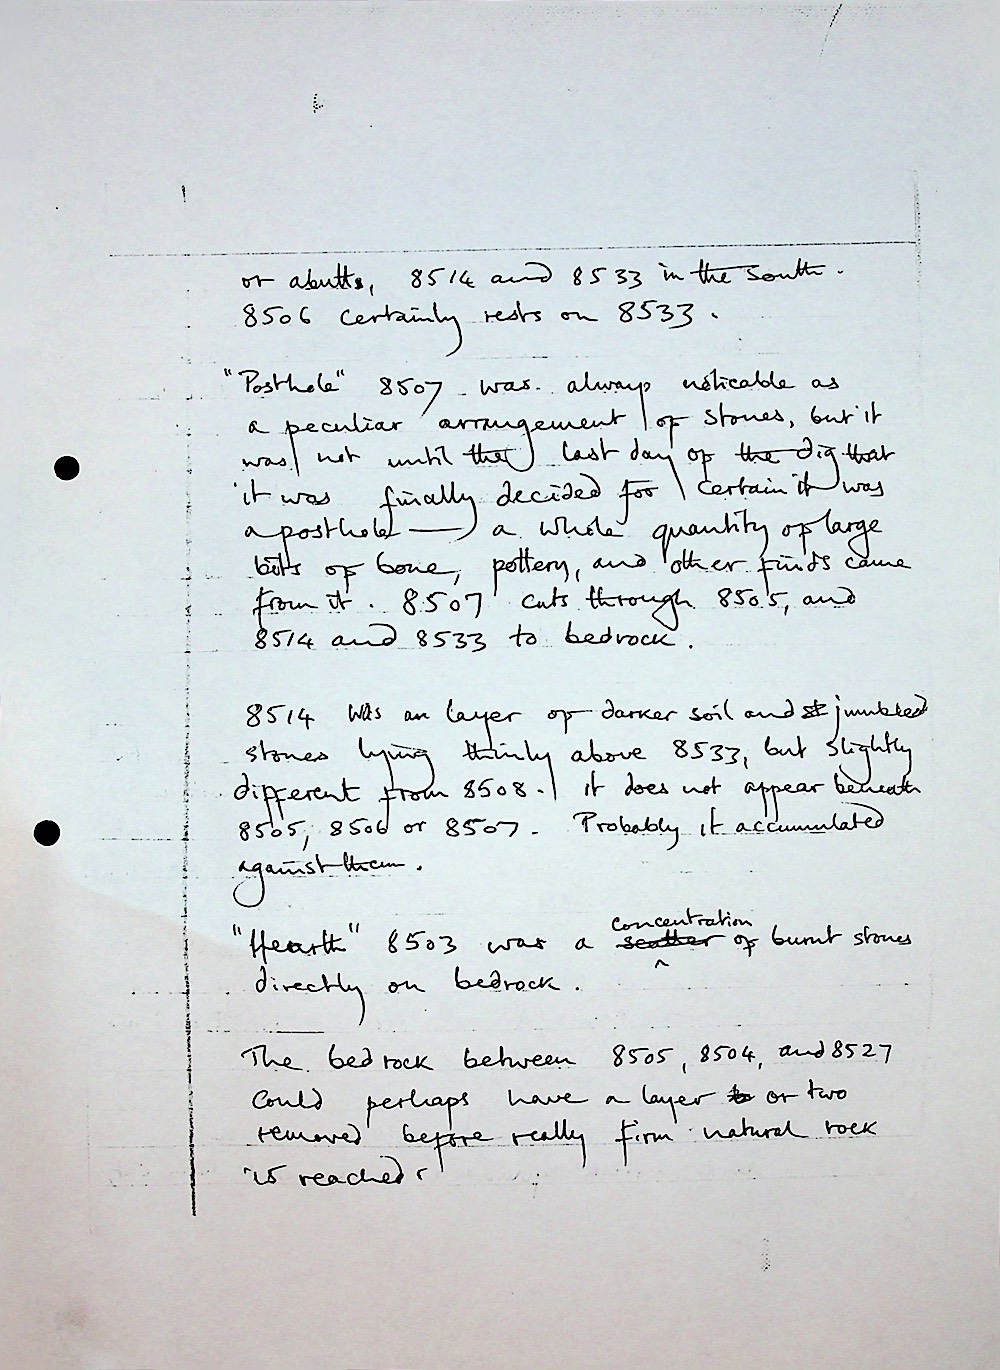 or abutts, 8514 and 8533 in the south.
8506 certainly rests on 8533.
"Posthole" 8507 was always noticable as
a peculiar arrangement of stones, but it
was not until the last day of the dig that
it was finally decided for certain it was
a posthole — a whole quantity of large
bits of bone, pottery, and other finds came
from it. 8507 cuts through 8505, and
8514 and 8533 to bedrock.
8514 was an layer of darker soil and st jumbled
stones lying thinly above 8533, but slightly
different from 8508. It does not appear beneath
8505, 8506 or 8507. Probably it accumulated
against them.
concentration
"Hearth" 8503 was a scatter of burnt stones
directly on bedrock.
The bedrock between 8505, 8504, and 8527
could perhaps have a layer or two
removed before really firm natural rock
is reached.